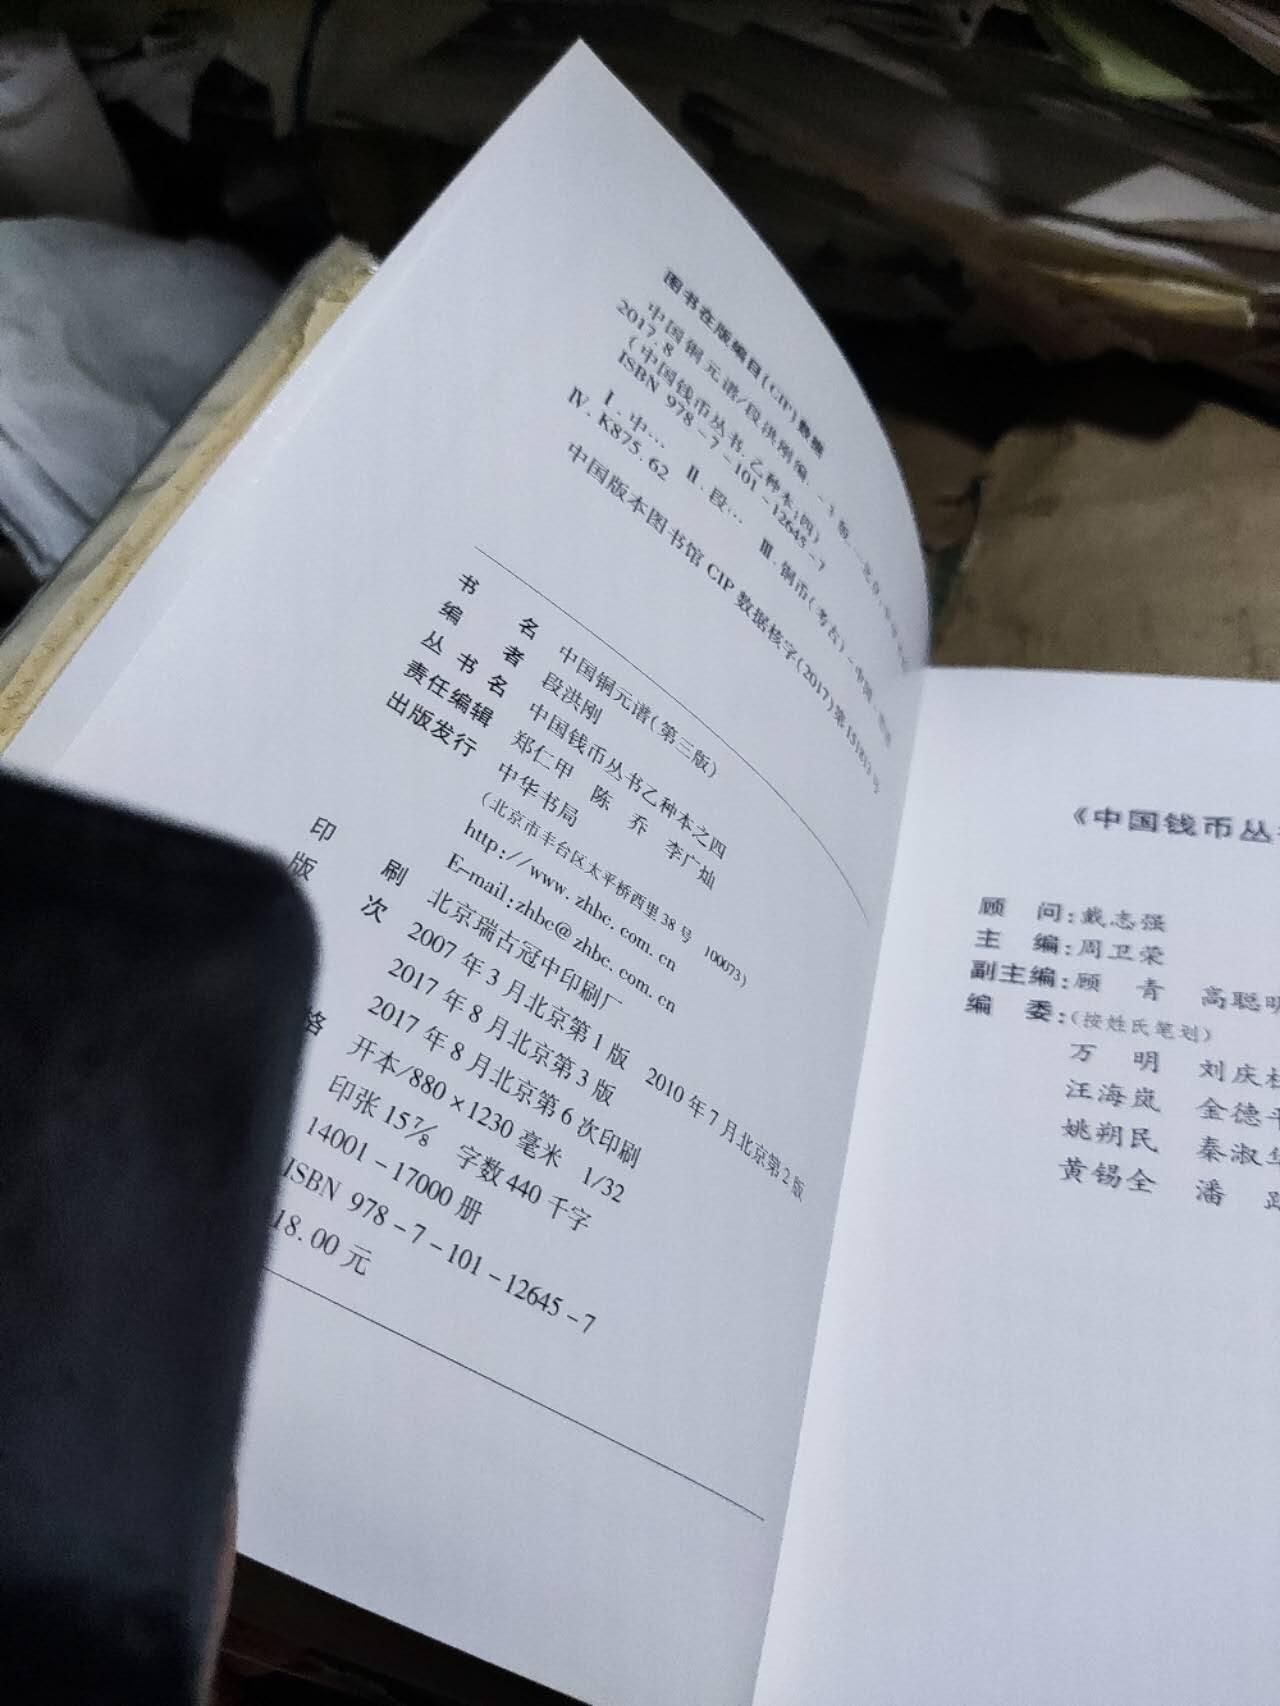 图书在版编目(CIP)数据
中国铜元谱/段洪刚编.-3版.-北京:中华
2017.8
(中国钱币丛书.乙种本;四)
ISBN 978-7-101-12645-7
Ⅰ.中… Ⅱ.段… Ⅲ.铜币(考古)-中国
Ⅳ.K875.62
中国版本图书馆CIP数据核字(2017)第
书 名 中国铜元谱(第三版)
编 者 段洪刚
丛 书 名 中国钱币丛书乙种本之四
责任编辑 郑仁甲 陈 乔 李广灿
出版发行 中华书局
(北京市丰台区太平桥西里38号 100073)
http://www.zhbc.com.cn
E-mail:zhbc@zhbc.com.cn
印 刷 北京瑞古冠中印刷厂
版 次 2007年3月北京第1版 2010年7月北京第2版
2017年8月北京第3版
2017年8月北京第6次印刷
格 开本/880×1230毫米 1/32
印张15⅞ 字数440千字
14001-17000册
ISBN 978-7-101-12645-7
18.00元
《中国钱币丛
顾 问:戴志强
主 编:周卫荣
副主编:顾 青 高聪明
编 委:(按姓氏笔划)
万 明 刘庆
汪海岚 金德
姚朔民 秦淑
黄锡全 潘